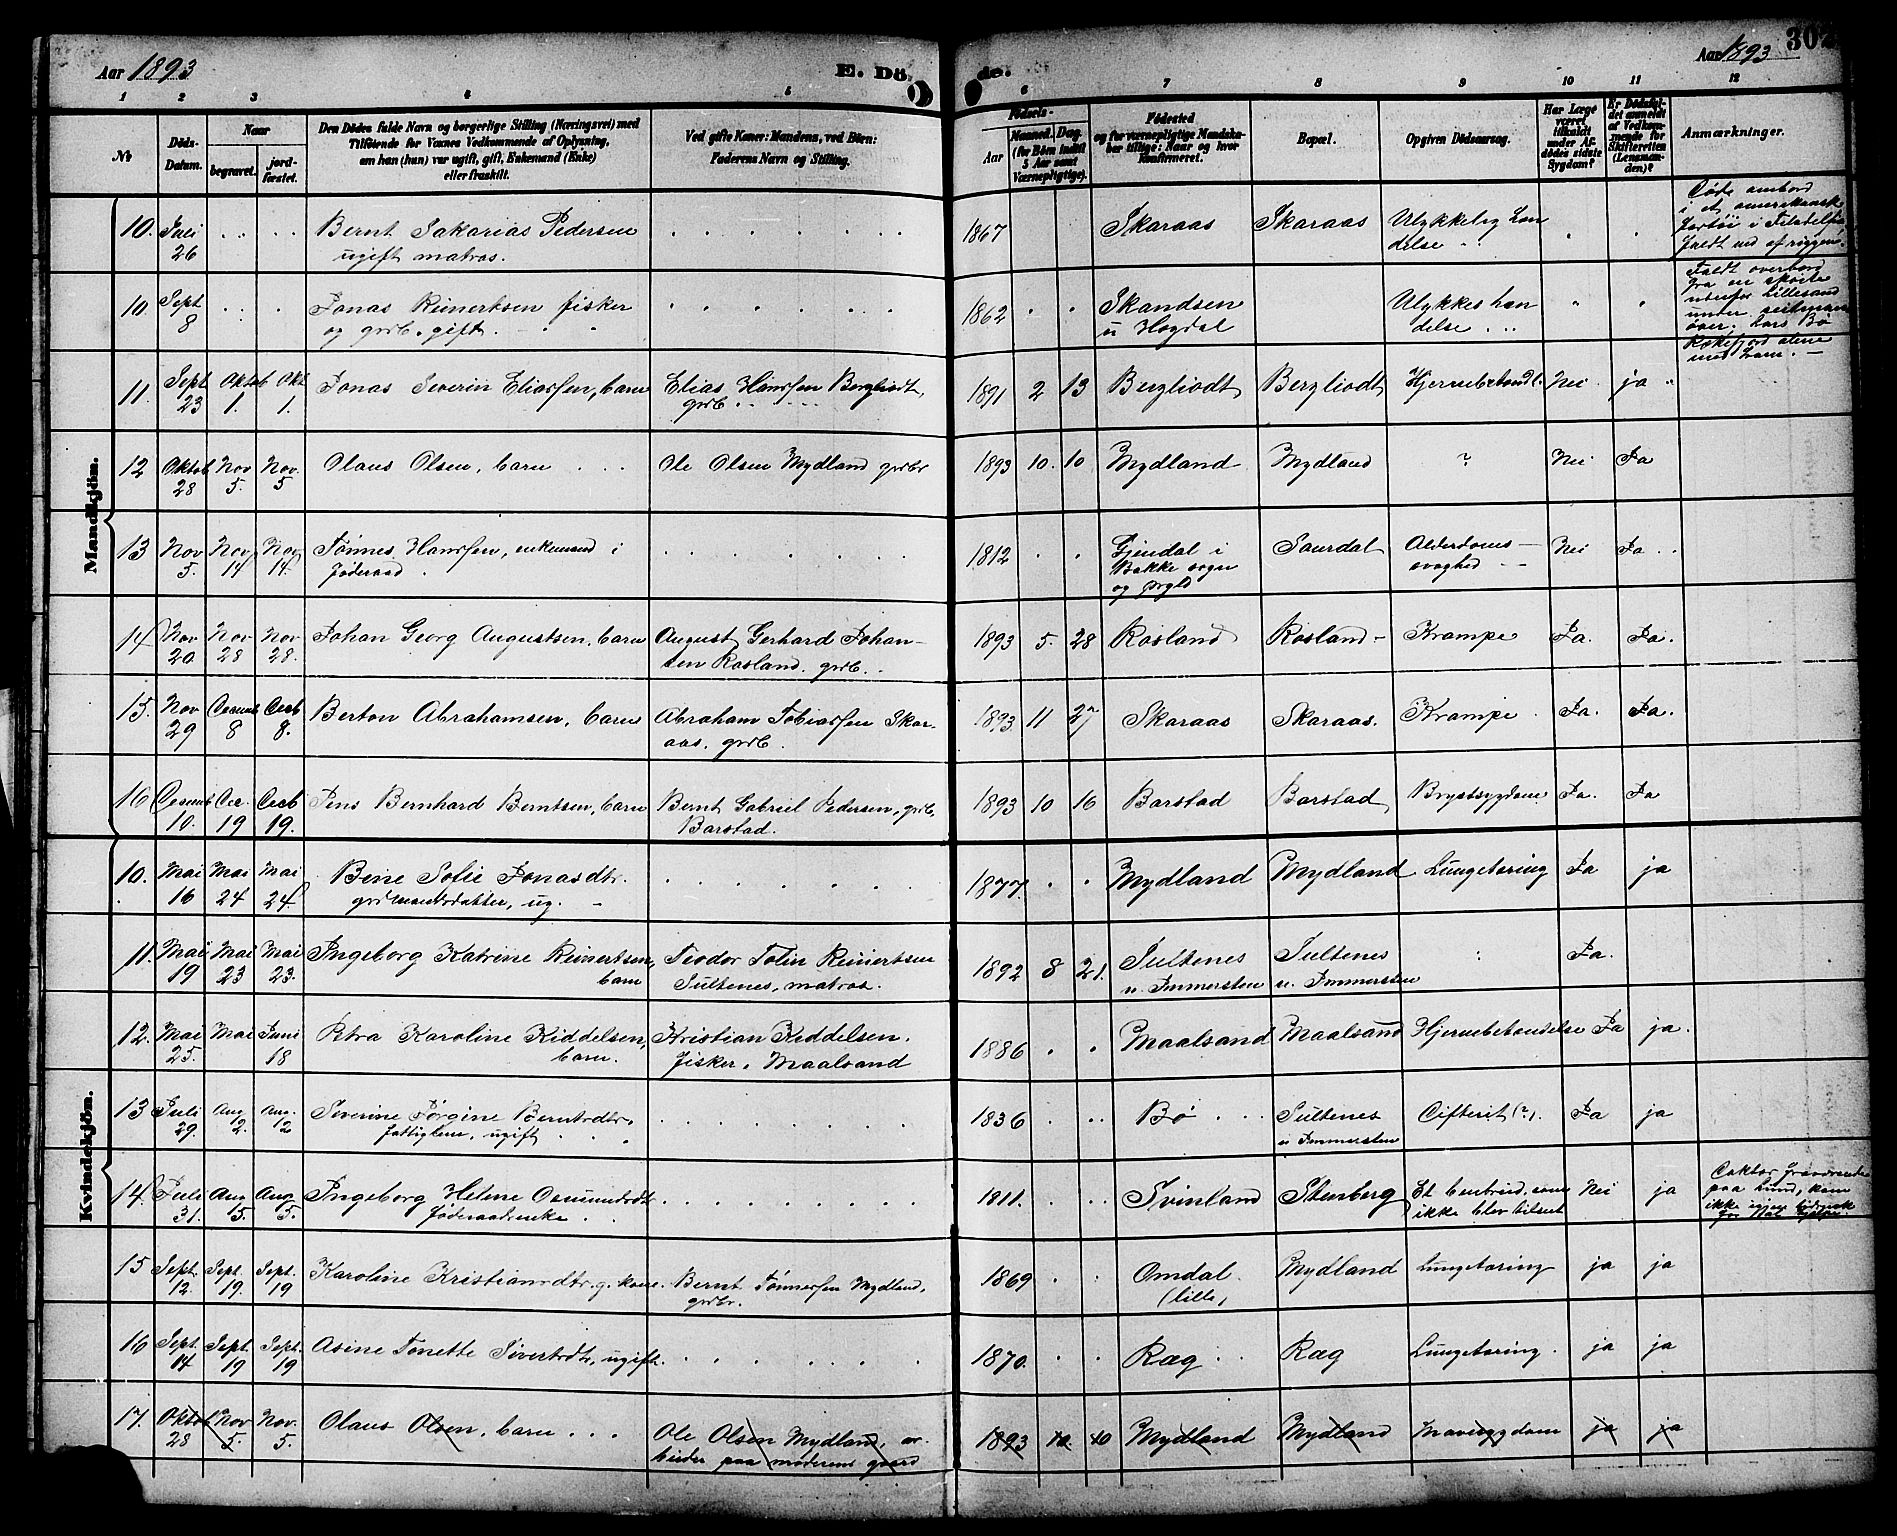 Aar 1893
E. Dö
de.
Aar 1893
302
1 2 3 4 5 6 7 8 9 10 11 12
No
Döds-Datum.
Naar
begravet.
jord-fæstet.
Den Dödes fulde Navn og borgerlige Stilling (Næringsvei) med
Tilföiende for Voxnes Vedkommende af Oplysning,
om han (hun) var ugift, gift, Enkemand (Enke)
eller fraskilt.
Ved gifte Koner: Mandens, ved Börn:
Faderens Navn og Stilling.
Födsels-
Aar
Maaned. Dag.
(for Börn indtil
5 Aar samt
Værnepligtige).
Födested
og for værnepligtige Mandska-
ber tillige: Naar og hvor
konfirmeret.
Bopæl.
Opgiven Dödsaarsag.
Har Læge
været
tilkaldt
under Af-
dödes sidste
Sygdom?
Er Dödsfal-
det anmeldt
af Vedkom-
mende for
Skifteretten
(Lensman-
den)?
Anmærkninger.
Mandkjön.
10. Juli 26 Bernt Sakarias Pedersen ugift matros. 1867 Skaraas Skaraas Ulykkelig hændelse Døde ombord i et amerikansk fartøi i Filadelfia faldt ned af riggen.
10 Sept 8 Jonas Reinertsen fisker og grdb. gift. 1862 Skandsen u Hogdal Ulykkes hændelse Faldt overbord fra en skøite udenfor Lillesand under Lars Bø Rækefjord alene med ham.
11. Sept 23 Oktob 1. Okt 1. Jonas Severin Eliassen, barn Elias Hansen Bergliodt, grdb. 1891 2 13 Bergliodt Bergliodt Hjernebetændl. Nei ja
12 Oktob 28 Nov 5. Nov. 5 Olaus Olsen, barn Ole Olsen Mydland grdbr 1893 10. 10 Mydland Mydland ? Nei Ja
13 Nov 5. Nov 14 Nov 14. Tønnes Hansen, enkemand i føderaad 1812 Gjendal i Bakke sogn og prgld Saurdal Alderdoms-svaghed Nei Ja
14 Nov 20 Nov 28 Nov 28. Johan Georg Augustsen, barn August Gerhard Johansen Rosland. grdb. 1893 5. 28 Rosland Rosland Krampe Ja. Ja.
15. Nov 29 Desemb 8 Desb 8. Berton Abrahamsen, barn Abraham Tobiassen Skaraas, grdb. 1893 11 27 Skaraas Skaraas. Krampe Ja. Ja.
16 Desemb 10. Des. 19 Desb 19. Jens Bernhard Berntsen, barn Bernt Gabriel Pedersen, grdb. Barstad. 1893 10 16 Barstad Barstad Brystsygdom Ja. Ja
Kvindekjön.
10. Mai 16 Mai 24 Mai 24. Bene Sofie Jonasdtr. grdmandsdatter, ug. 1877. Mydland Mydland Lungetæring Ja ja
11. Mai 19 Mai 23 Mai 23. Ingeborg Katrine Reinertsen, barn Teodor Tolin Reinertsen Sultenes, matros. 1892 8 21. Sultenes u. Immersten Sultenes u. Immersten Ja.
12. Mai 25. Mai Juni 18 Petra Karoline Kiddelsen, barn. Kristian Kiddelsen. fisker, Maalsand 1886 Maalsand Maalsand Hjernebetændelse Ja ja.
13 Juli 29. Aug 12. Aug. 12 Severine Jørgine Berntsdtr. fattiglem, ugift 1836 Bø Sultenes u Immersten Difterit (?). Ja ja
14. Juli 31. Aug 5. Aug 5. Ingeborg Helene Osmundsdtr føderaadsenke 1811. Svinland Stenberg Et benbrud, som ikke blev tilseet Nei ja Doktor paa Lund, kom ikke
15 Sept. 12. Sept. 19. Sept. 19 Karoline Kristiansdtr. g. kone. Bernt Tønnessen Mydland, grdbr. 1869 Omdal. (lille) Mydland Lungetæring ja ja
16 Sept. 14 Sept. 19 Sept. 19 Asine Tonette Sivertsdtr, ugift. 1870. Ræg Ræg Lungetæring. ja ja
17. Oktob 28 Nov 5. Nov. 5. Olaus Olsen, barn Ole Olsen Mydland, arbeider paa moderens gaard 1893 10. 10 Mydland Mydland Mavesygdom ja ja